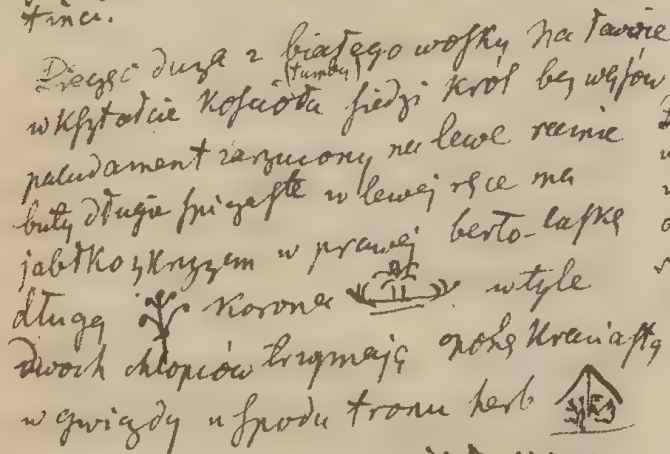 tinci.
Pieczęć duża z białego wosku na ławie
(tumby)
w kształcie Kościoła siedzi król bez wąsów
paludament zarzucony na lewe ramie
buty długie spiczaste w lewej ręce ma
jabłko z krzyżem w prawej berło-laskę
długą korona w tyle
dwoch chłopców trzymają oponę kraciastą
w gwiazdy u spodu tronu herb